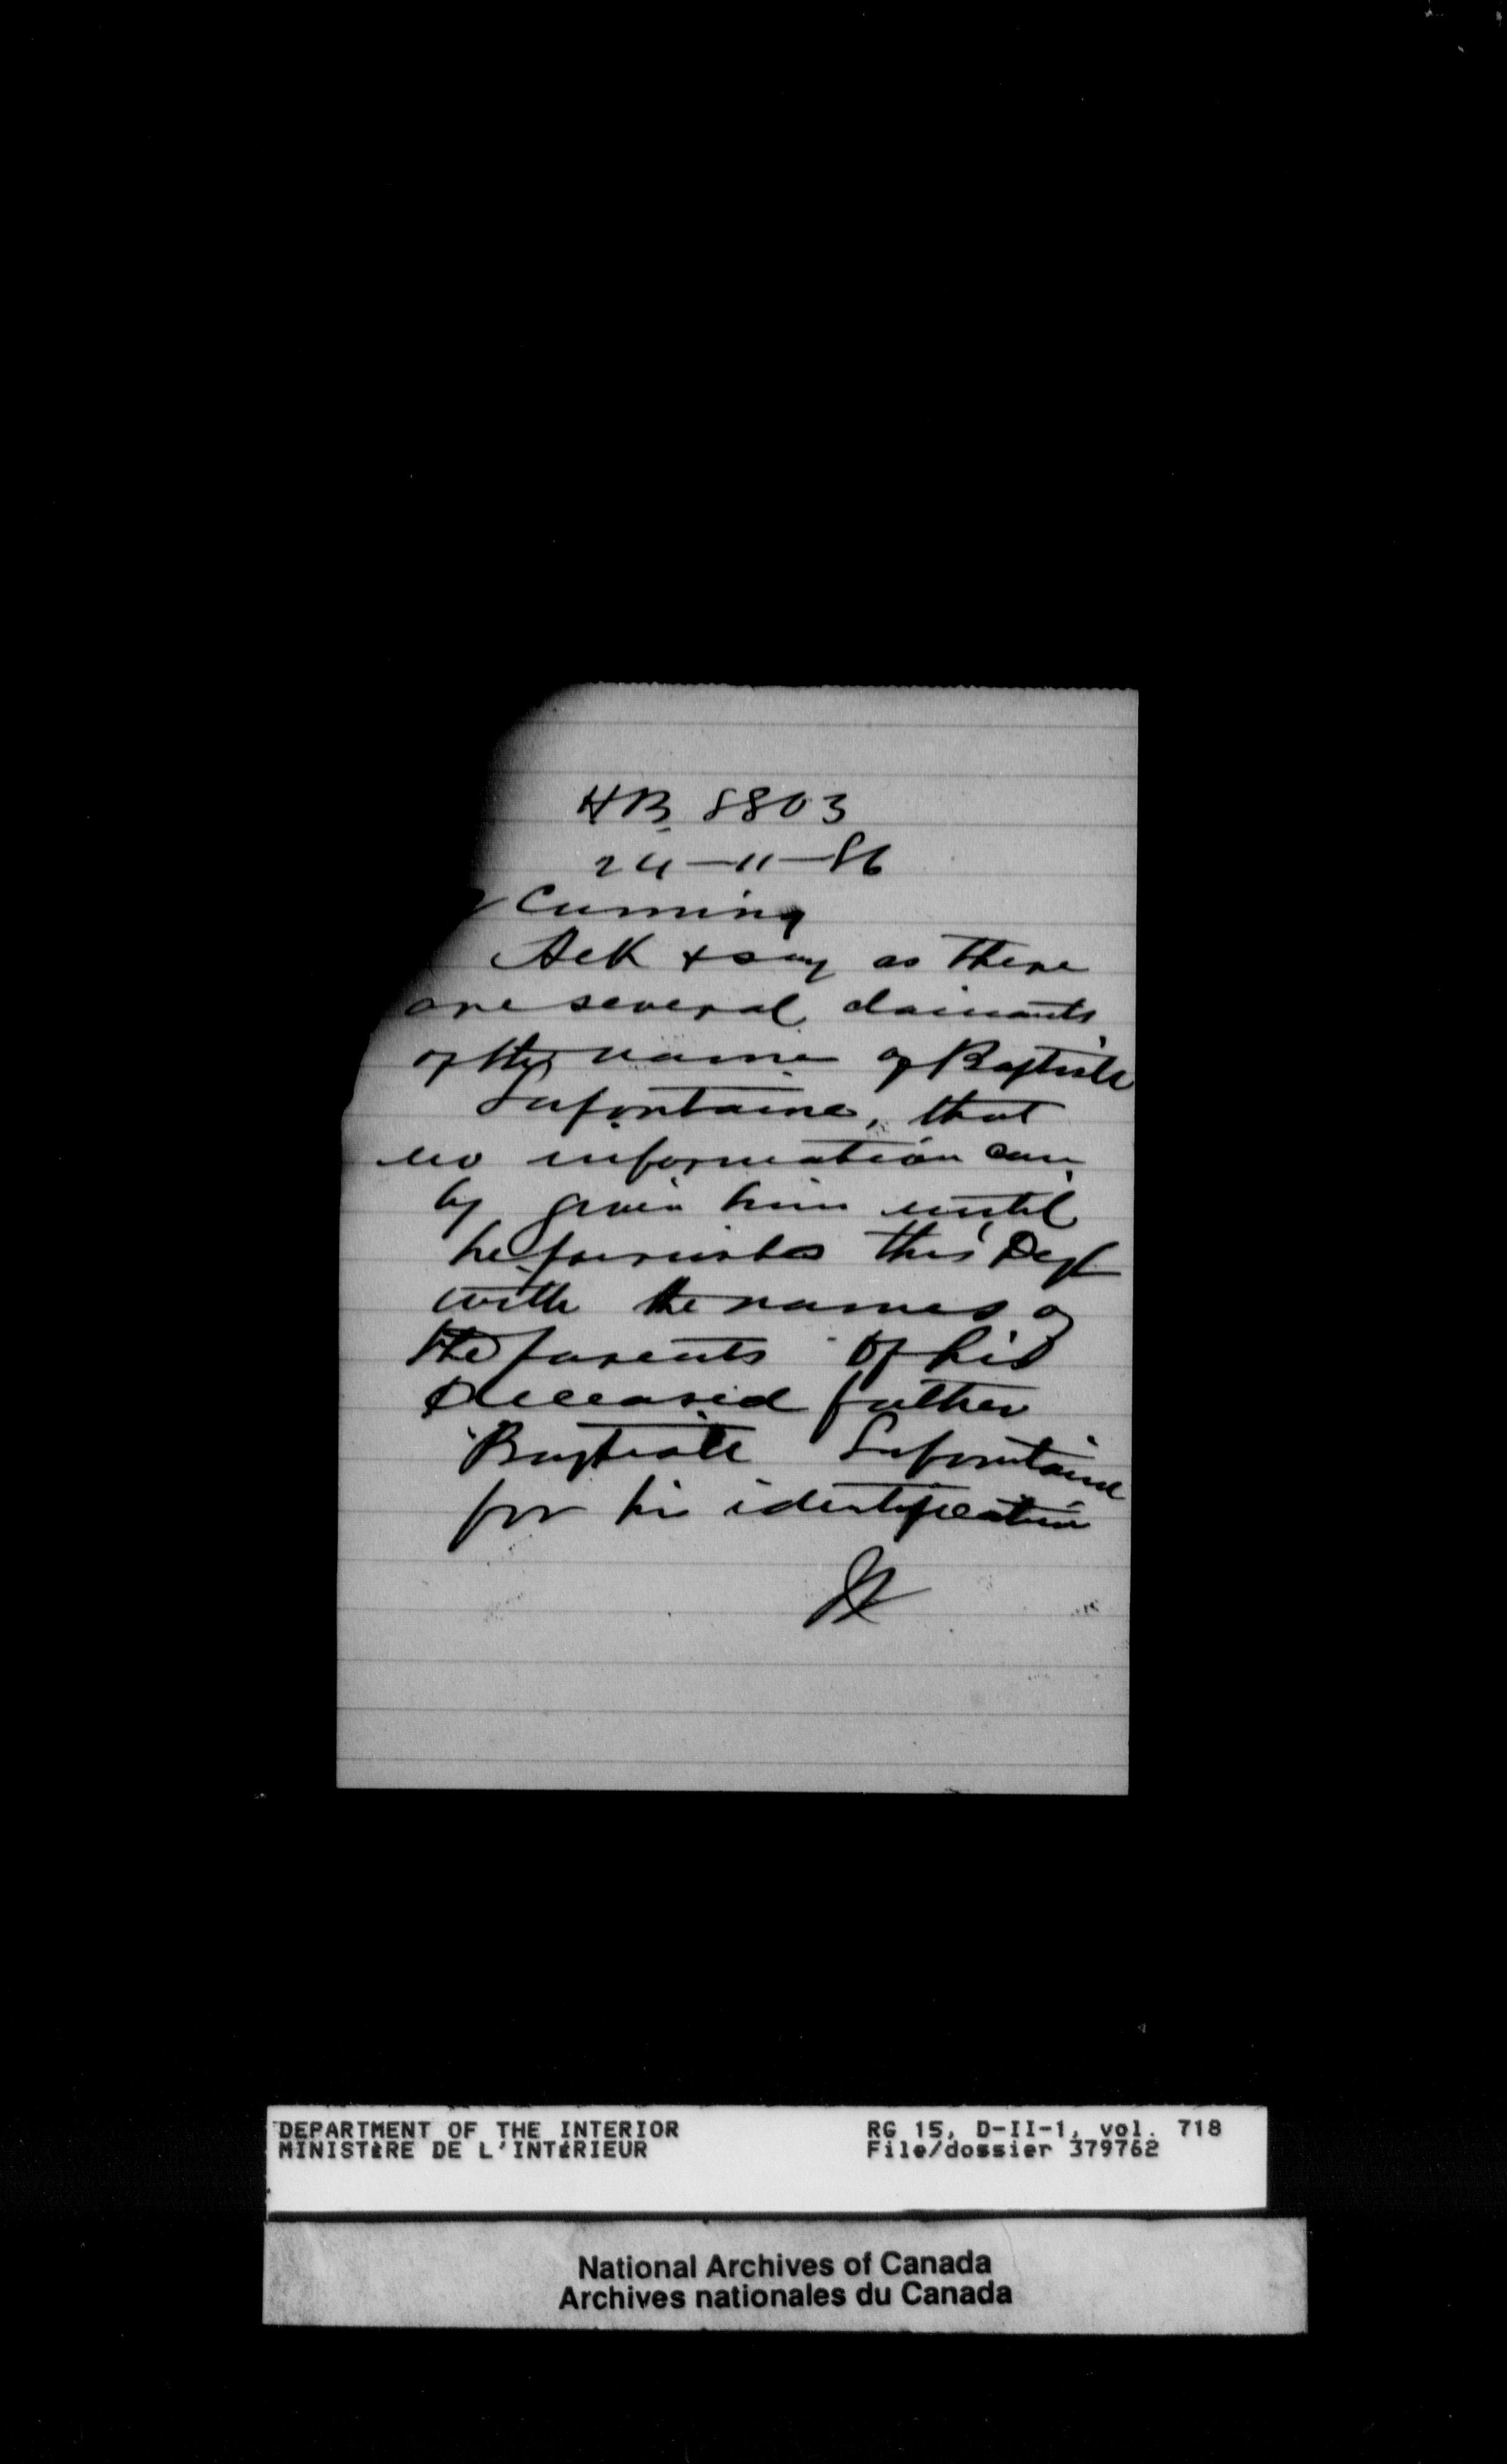 HB 8803
24-11-86
Cuming
Ack & say as there
are several claimants
of the name of Baptiste
Lafontaine, that
no information can
be given him until
he furnishes this Dept
with the names of
the parents of his
Deceased father
Baptiste Lafontaine
for his identification
DEPARTMENT OF THE INTERIOR RG 15, D-II-1, vol. 718
MINISTÈRE DE L'INTÉRIEUR File/dossier 379762
National Archives of Canada
Archives nationales du Canada